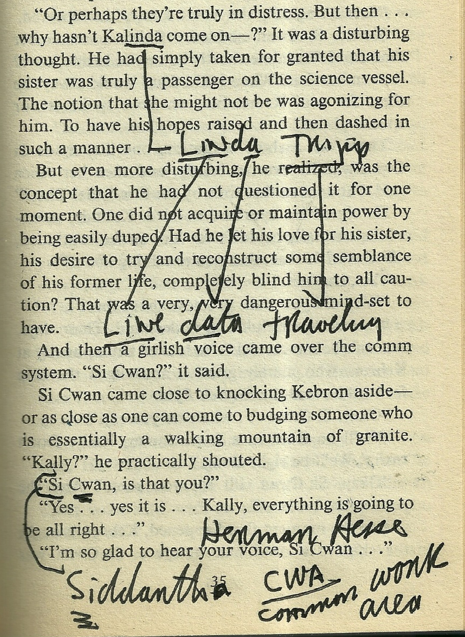 “Or perhaps they’re truly in distress. But then . . .
why hasn’t Kalinda come on—?” It was a disturbing
thought. He had simply taken for granted that his
sister was truly a passenger on the science vessel.
The notion that she might not be was agonizing for
him. To have his hopes raised and then dashed in
such a manner . .
Linda Tripp
But even more disturbing, he realized, was the
concept that he had not questioned it for one
moment. One did not acquire or maintain power by
being easily duped. Had he let his love for his sister,
his desire to try and reconstruct some semblance
of his former life, completely blind him to all cau-
tion? That was a very, very dangerous mind-set to
have.
Live data traveling
And then a girlish voice came over the comm
system. “Si Cwan?” it said.
Si Cwan came close to knocking Kebron aside—
or as close as one can come to budging someone who
is essentially a walking mountain of granite.
“Kally?” he practically shouted.
“Si Cwan, is that you?”
“Yes . . . yes it is . . . Kally, everything is going to
be all right . . .”
Herman Hesse
“I’m so glad to hear your voice, Si Cwan . . .”
Siddantha
35
CWA
common work
area